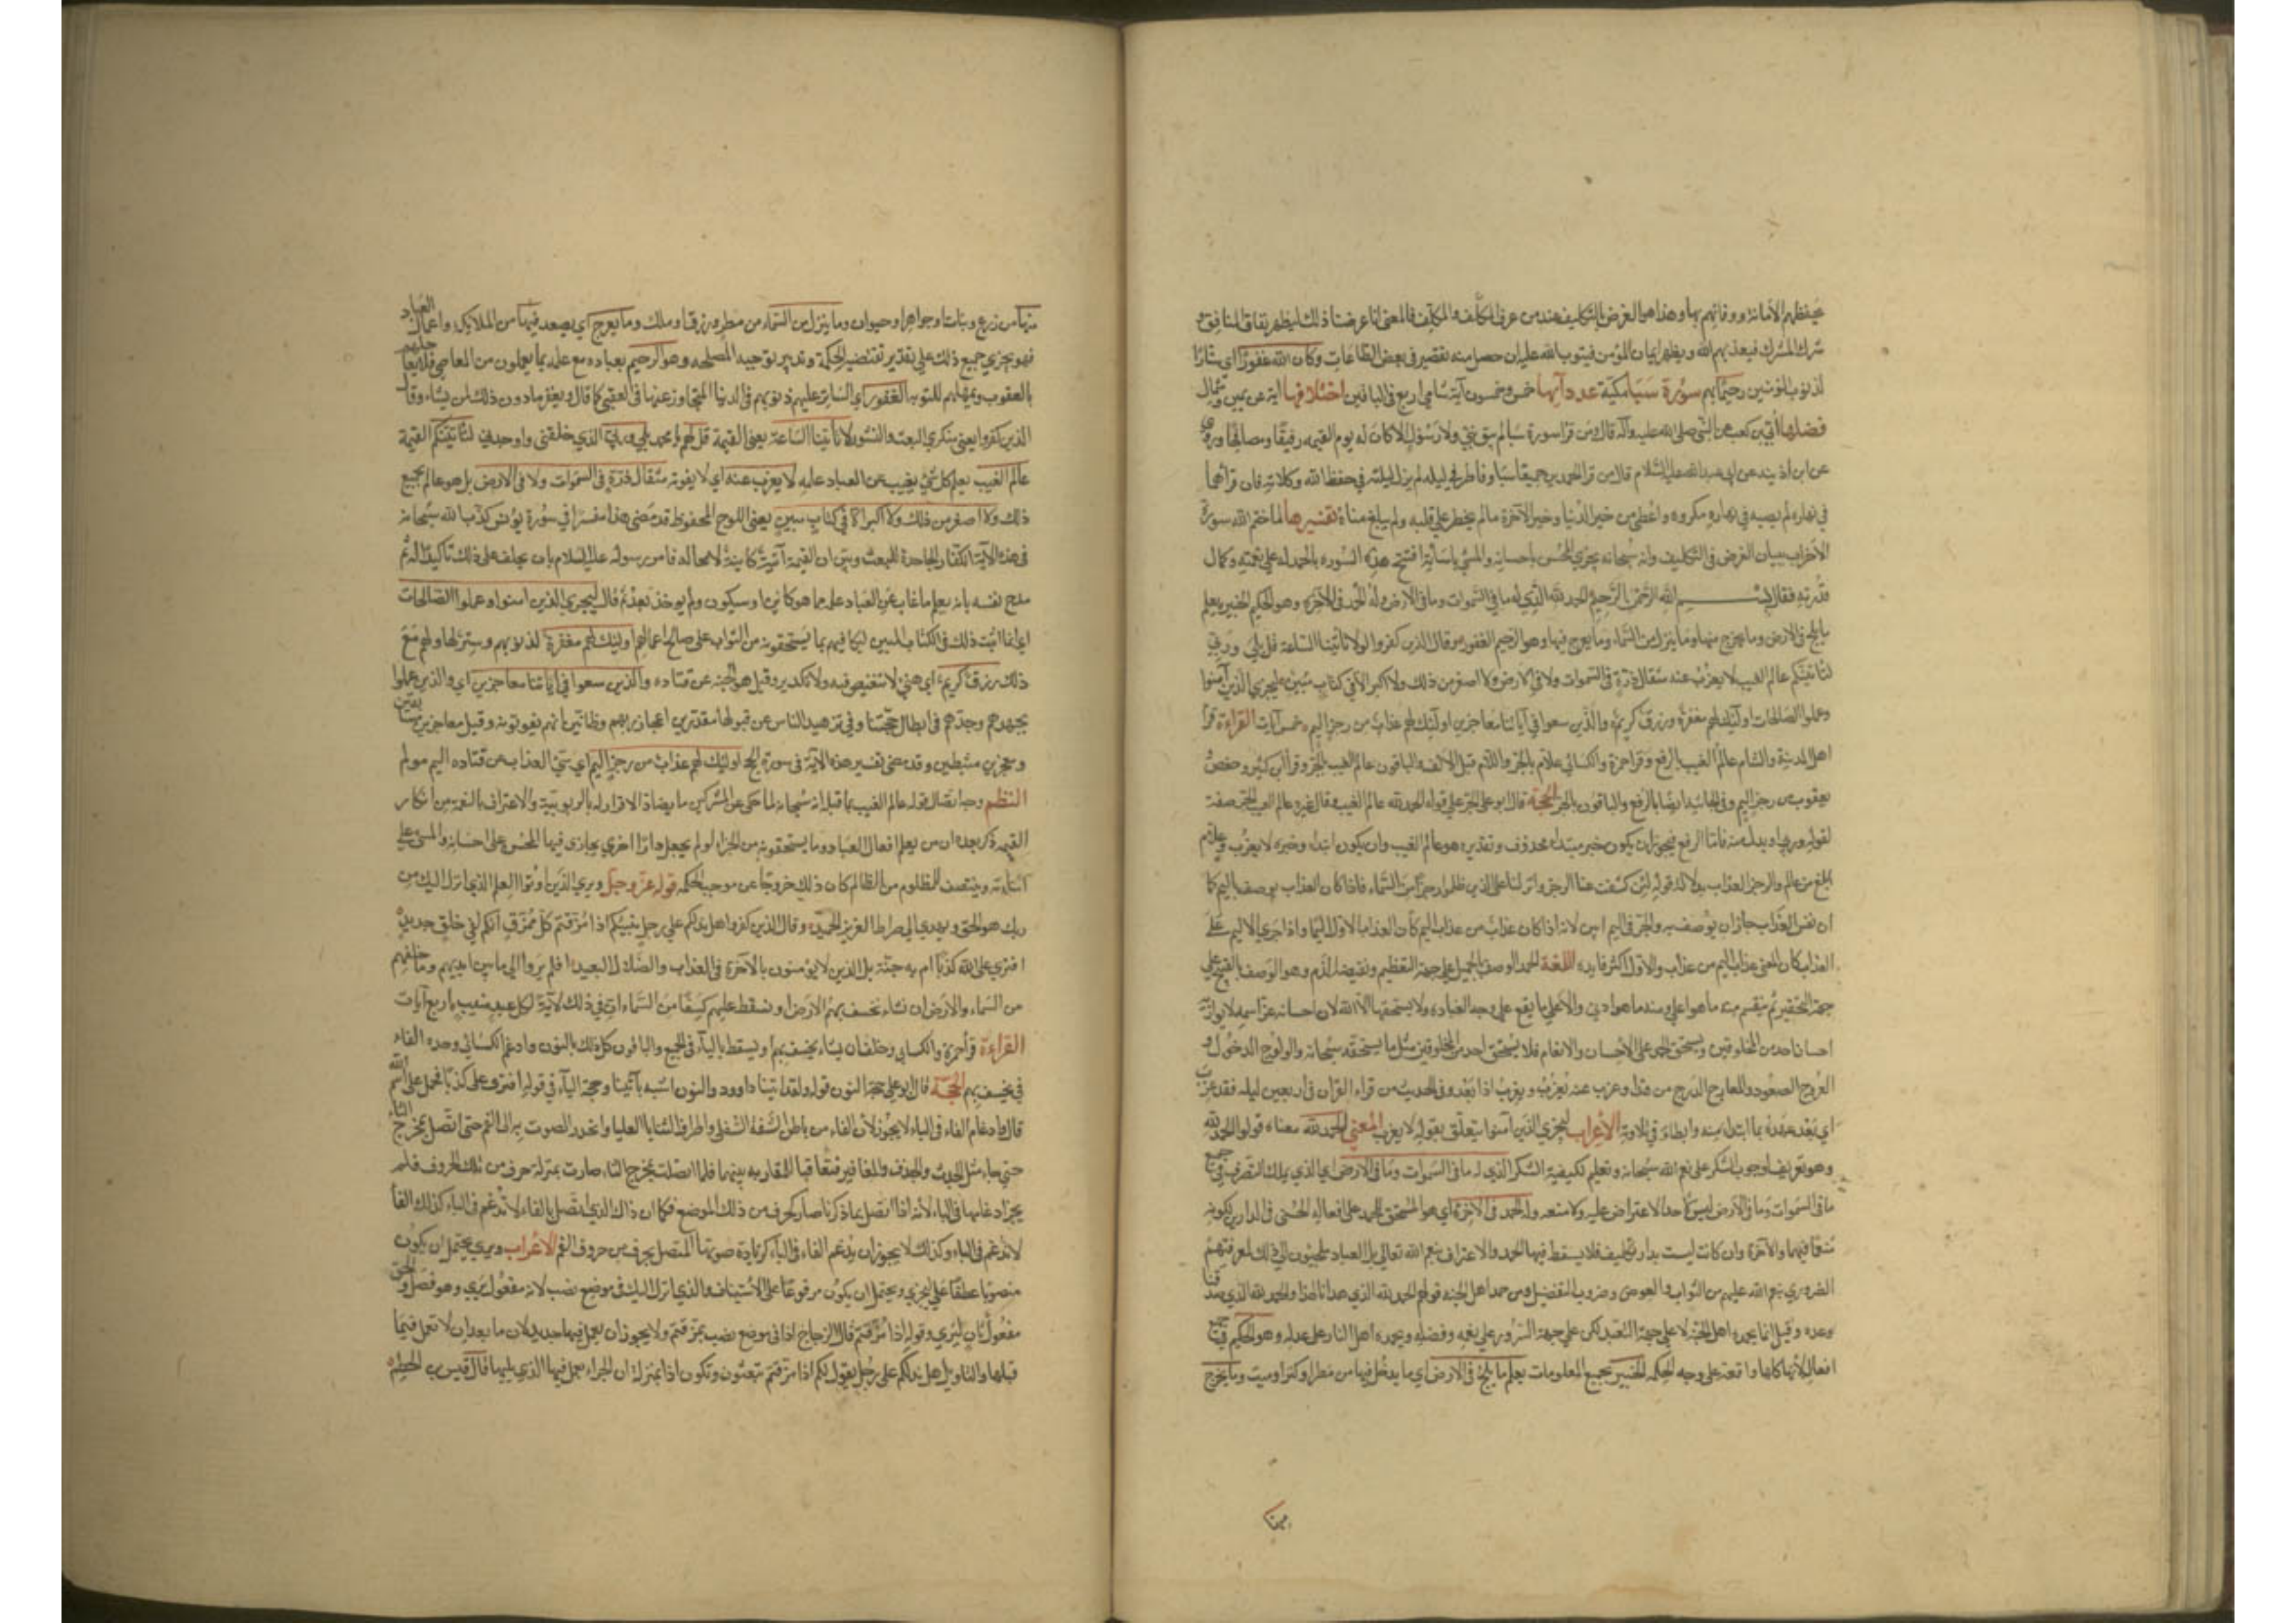 بحفظهم الأمانة ووفائهم بها وهذا هو الغرض بالتكليف عند من عرف المكلف والمكلف فالمعنى انا عرضنا ذلك ليظهر نفاق المنافق و
شرك المشرك فيعذبهم الله ويظهر ايمان المؤمن فيتوب الله عليه ان حصل منه تقصير في بعض الطاعات وكان الله غفورا اي ستارا
لذنوب المؤمنين رحيما بهم سورة سبا مكية عدد آيها خمس وخمسون آية شامي اربع في الباقين اختلافها آية عن يمين وشمال
فضلها ابي بن كعب عن النبي صلى الله عليه وآله قال ومن قرا سورة سبا لم يبق نبي ولا رسول الا كان له يوم القيمة رفيقا ومصافحا وروي
عن ابن اذينه عن ابي عبد الله عليه السلام قال من قرا الحمدين جميعا سبا وفاطر في ليله لم يزل ليلته في حفظ الله وكلاته فان قرأهما
في نهاره لم يصبه في نهاره مكروه واعطي من خير الدنيا وخير الآخرة ما لم يخطر على قلبه ولم يبلغ مناه تفسيرها لما ختم الله سورة
الاحزاب ببيان الغرض في التكليف وانه سبحانه يجزي المحسن باحسانه والمسيء باساءته افتتح هذه السوره بالحمد له على نعمته وكمال
قدرته فقال بسم الله الرحمن الرحيم الحمد لله الذي له ما في السموات وما في الارض وله الحمد في الآخرة وهو الحكيم الخبير يعلم
ما يلج في الارض وما يخرج منها وما ينزل من السماء وما يعرج فيها وهو الرحيم الغفور وقال الذين كفروا لا تاتينا الساعة قل بلى وربي
لتاتينكم عالم الغيب لا يعزب عنه مثقال ذرة في السموات ولا في الارض ولا اصغر من ذلك ولا اكبر الا في كتاب مبين ليجزي الذين آمنوا
وعملوا الصالحات اولئك لهم مغفرة ورزق كريم والذين سعوا في آياتنا معاجزين اولئك لهم عذاب من رجز اليم خمس آيات القراءة قرأ
اهل المدينة والشام عالم الغيب بالرفع وقرا حمزة والكسائي علام بالجر واللام قبل الالف والباقون عالم الغيب بالجر وقرأ ابن كثير وحفص
يعقوب من رجز اليم وفي الجاثية ايضا بالرفع والباقون بالجر الحجة قال ابو علي الجر على قوله الحمد لله عالم الغيب وقال غيره عالم الغيب بالجر صفة
لقوله وربي او بدل منه فاما الرفع فيجوز ان يكون خبر مبتداء محذوف وتقديره هو عالم الغيب وان يكون ابتداء وخبره لا يعزب وعلام
ابلغ من عالم والرجز العذاب بدلالة قوله لئن كشفت عنا الرجز وانزلنا على الذين ظلموا رجزا من السماء فاذا كان العذاب يوصف باليم كما
ان نفس العذاب جاز ان يوصف به والجر في اليم ابين لانه اذا كان عذاب من عذاب اليم كان العذاب الاول اليما واذا اجري الاليم على
العذاب كان المعنى عذاب اليم من عذاب والاول اكثر فايده اللغة الحمد الوصف بالجميل على جهة التعظيم ونقيضه الذم وهو الوصف بالقبيح على
جهة التحقير ثم ينقسم منه ما هو اعلى ومنه ما هو ادنى والاعلى ما يقع على وجه العباده ولا يستحقها الا الله لان احسانه عز اسمه لا يوازنه
احسان احد من المخلوقين ويستحق الحمد على الاحسان والانعام فلا يستحق احد من المخلوقين مثل ما يستحقه سبحانه والولوج الدخول و
العروج الصعود والمعارج الدرج من هذا وعزب عنه يعزب ويعزب اذا بعد وفي الحديث من قراء القرآن في اربعين ليله فقد عزب
اي بعد عهده بما ابتداء منه وابطاء في تلاوته الاعراب ليجزي الذين آمنوا يتعلق بقوله لا يعزب المعنى الحمد لله معناه قولوا الحمد لله
وهو تعريف لوجوب الشكر على نعم الله سبحانه وتعليم لكيفية الشكر الذي له ما في السموات وما في الارض اي الذي يملك التصرف في جميع
ما في السموات وما في الارض ليس لاحد الاعتراض عليه ولا منعه وله الحمد في الآخرة اي هو المستحق للحمد على افعاله الحسنى في الدارين لكونه
منعما فيهما والآخرة وان كانت ليست بدار تكليف فلا يسقط فيها الحمد والاعتراف بنعم الله تعالى بل العباد ملجؤون الى ذلك لمعرفتهم
الضروري بنعم الله عليهم من الثواب والعوض وضروب التفضيل ومن حمد اهل الجنه قولهم الحمد لله الذي هدانا لهذا والحمد لله الذي صدقنا
وعده وقيل انما يحمده اهل الجنة لا على جهة التعبد لكن على جهة السرور على نعمه وفضله ويحمده اهل النار على عدله وهو الحكيم في جميع
افعاله لانها كلها واقعة على وجه الحكمه الخبير بجميع المعلومات يعلم ما يلج في الارض اي ما يدخل فيها من مطر او كنز او ميت وما يخرج
منها
منها من زرع ونبات او جواهر او حيوان وما ينزل من السماء من مطر ورزق او ملك وما يعرج اي يصعد فيها من الملايكة واعمال العباد
فهو يجري جميع ذلك على تقدير تقتضيه الحكمة وتدبير توجبه المصلحه وهو الرحيم بعباده مع علمه بما يعملون من المعاصي فلا يعاجلهم
بالعقوبة ويمهلهم للتوبه الغفور اي الساتر عليهم ذنوبهم في الدنيا المتجاوز عنها في العقبى كما قال ويغفر ما دون ذلك لمن يشاء وقال
الذين كفروا يعني منكري البعث والنشور لا تاتينا الساعة يعني القيمة قل لهم يا محمد بلى وربي الذي خلقني واوجدني لتاتينكم القيمة
عالم الغيب يعلم كل شيء يغيب عن العباد علمه لا يعزب عنه اي لا يفوته مثقال ذرة في السموات ولا في الارض بل هو عالم بجميع
ذلك ولا اصغر من ذلك ولا اكبر الا في كتاب مبين يعني اللوح المحفوظ وقد مضى هذا مفسرا في سورة يونس كذب الله سبحانه
في هذه الآية الكفار الجاحدة للبعث وبين ان القيمة آتية كاينة لا محاله فامر رسوله عليه السلام بان يحلف على ذلك تاكيدا له ثم
مدح نفسه بانه يعلم ما غاب عن العباد علمه مما هو كاين او سيكون ولم يوجد بعد ثم قال ليجزي الذين آمنوا وعملوا الصالحات
اي انما اثبت ذلك في الكتاب المبين ليكافيهم بما يستحقونه من الثواب على صالح اعمالهم اولئك لهم مغفرة لذنوبهم وستر لها ولهم مع
ذلك رزق كريم اي هني لا تنغيص فيه ولا تكدير وقيل هو الجنة عن قتاده والذين سعوا في آياتنا معاجزين اي والذين عملوا
بجهدهم وجدهم في ابطال حججنا وفي تزهيد الناس عن قبولها مقدرين اعجاز ربهم وظانين انهم يفوتونه وقيل معاجزين مسابقين
ومعجزين مثبطين وقد مضى تفسير هذه الآية في سورة الحج اولئك لهم عذاب من رجز اليم اي سيء العذاب عن قتاده اليم مولم
النظم وجه اتصال قوله عالم الغيب بما قبله انه سبحانه لما حكى عن المشركين ما يضاد الاقرار له بالربوبية والاعتراف بالنعمة من انكار
القيمة ذكر بعده ان من يعلم افعال العباد وما يستحقونه من الجزاء لو لم يجعل دارا اخرى يجازى فيها المحسن على احسانه والمسيء على
اساءته وينتصف للمظلوم من الظالم كان ذلك خروجا عن موجب الحكمه قوله عز وجل ويرى الذين اوتوا العلم الذي انزل اليك من
ربك هو الحق ويهدي الى صراط العزيز الحميد وقال الذين كفروا هل ندلكم على رجل ينبئكم اذا مزقتم كل ممزق انكم لفي خلق جديد
افترى على الله كذبا ام به جنة بل الذين لا يؤمنون بالآخرة في العذاب والضلال البعيد افلم يروا الى ما بين ايديهم وما خلفهم
من السماء والارض ان نشاء نخسف بهم الارض او نسقط عليهم كسفا من السماء ان في ذلك لآية لكل عبد منيب اربع آيات
القراءة قرأ حمزة والكسائي وخلف ان يشاء يخسف بهم او يسقط بالياء في الجميع والباقون كل ذلك بالنون وادغم الكسائي وحده الفاء
في يخسف بهم الحجة قال ابو علي حجة النون قوله ولقد آتينا داوود والنون اشبه بآتينا وحجة الياء في قوله افترى على الله كذبا فحمل على اسم الله
قال وادغام الفاء في الباء لا يجوز لان الفاء من باطن الشفة السفلى واطراف الثنايا العليا وانحدر الصوت به الى الفم حتى اتصل بمخرج الثاء
حتى جاء مثل الجدث والجدف والمغافير فتعاقبا للمقاربه بينهما فلما اتصلت بمخرج الثاء صارت بمنزلة حرف من تلك الحروف فلم
يجز ادغامها في الباء لانه اذا اتصل بما ذكرنا صار كحرف من ذلك الموضع فكما ان ذاك الذي اتصل بالفاء لا تدغم في الباء كذلك الفاء
لا تدغم في الباء وكذلك لا يجوز ان يدغم الفاء في الباء لزيادة صوتها المتصل بحرف من حروف الفم الاعراب ويرى يحتمل ان يكون
منصوبا عطفا على ليجزي ويحتمل ان يكون مرفوعا على الاستيناف والذي انزل اليك في موضع نصب لانه مفعول يرى وهو فصل والحق
مفعول ثان ليرى وقوله اذا مزقتم قال الزجاج اذا في موضع نصب بمزقتم ولا يجوز ان يعمل فيها جديد لان ما بعد ان لا تعمل فيما
قبلها والتاويل هل ندلكم على رجل يقول لكم اذا مزقتم تبعثون وتكون اذا بمنزلة ان الجزاء يعمل فيها الذي يليها قال قيس بن الخطيم